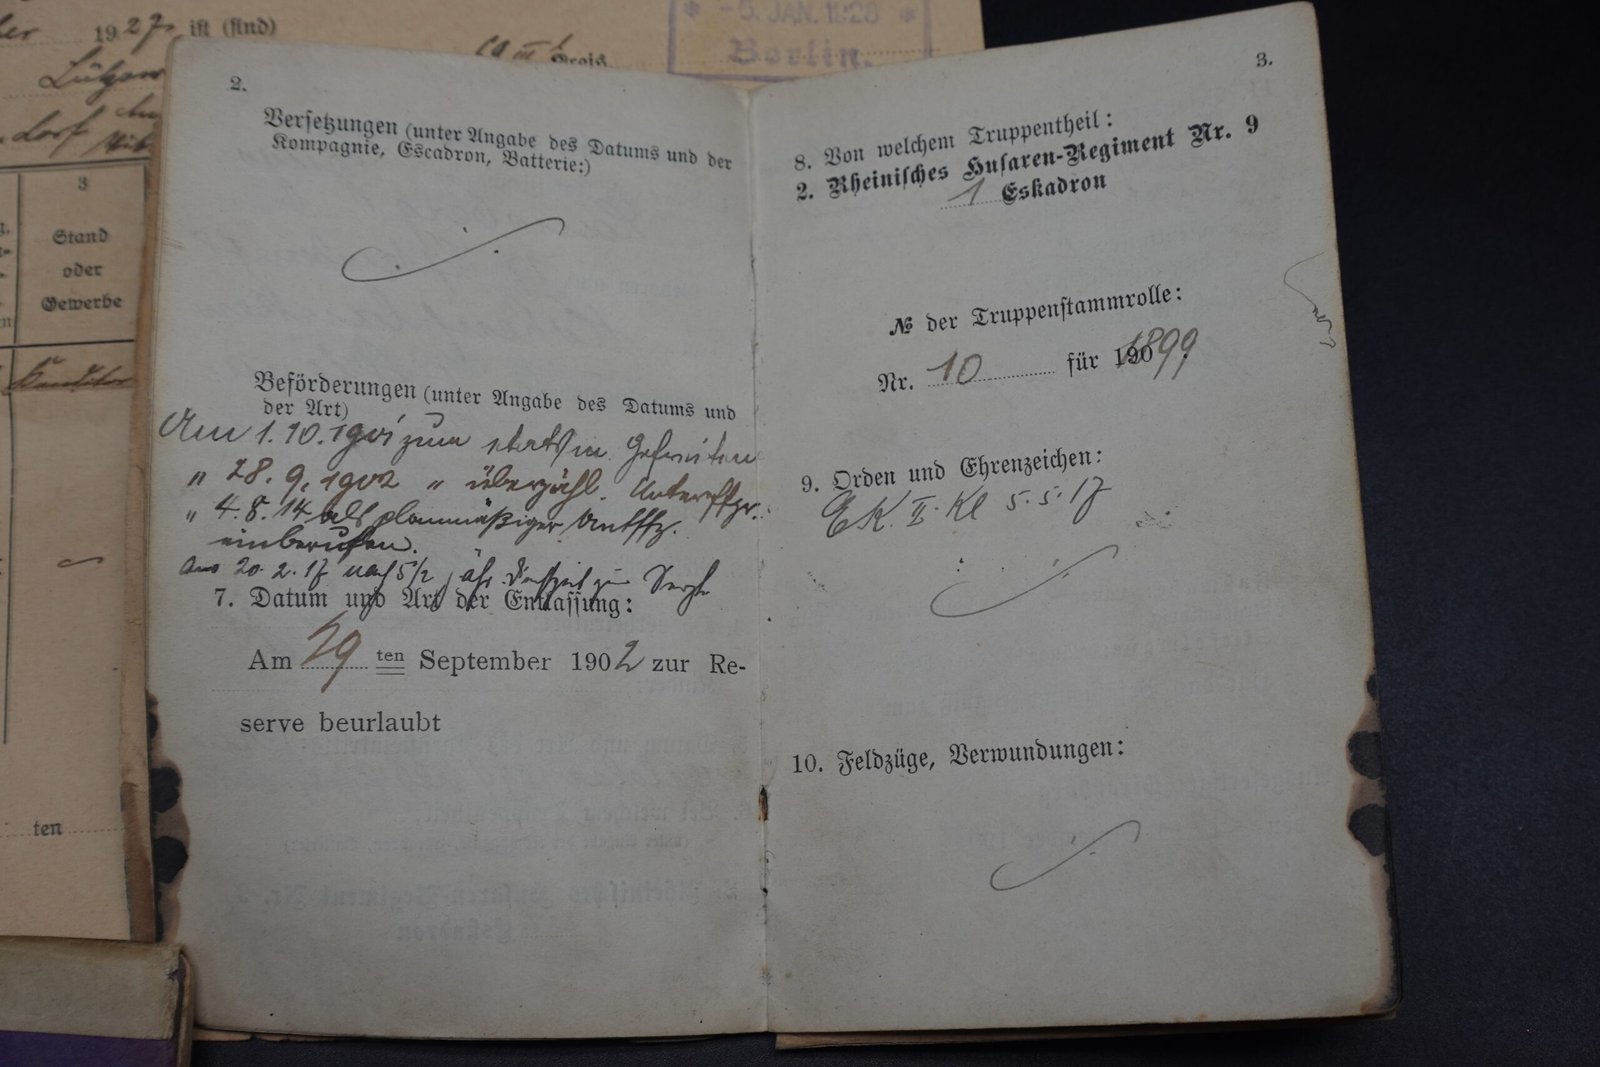 1927 ist (sind)
Lützow
dorf
3
Stand
oder
Gewerbe
Konditor
ten
-5. JAN. 1928
Berlin.
Kreis
2.
Versetzungen (unter Angabe des Datums und der
Kompagnie, Escadron, Batterie:)
Beförderungen (unter Angabe des Datums und
der Art)
Am 1.10.1901 zum etatsm. Gefreiten
" 28.9.1902 " überzähl. Unteroffzr.
" 4.8.14 als planmäßiger Untffz.
einberufen.
20.2.17 nach 5½ jähr. Dienstzeit zum
7. Datum und Art der Entlassung:
Am 29 ten September 1902 zur Re-
serve beurlaubt
3.
8. Von welchem Truppentheil:
2. Rheinisches Husaren-Regiment Nr. 9
1 Eskadron
№ der Truppenstammrolle:
Nr. 10 für 1899.
9. Orden und Ehrenzeichen:
EK. II. Kl 5.5.17
10. Feldzüge, Verwundungen: